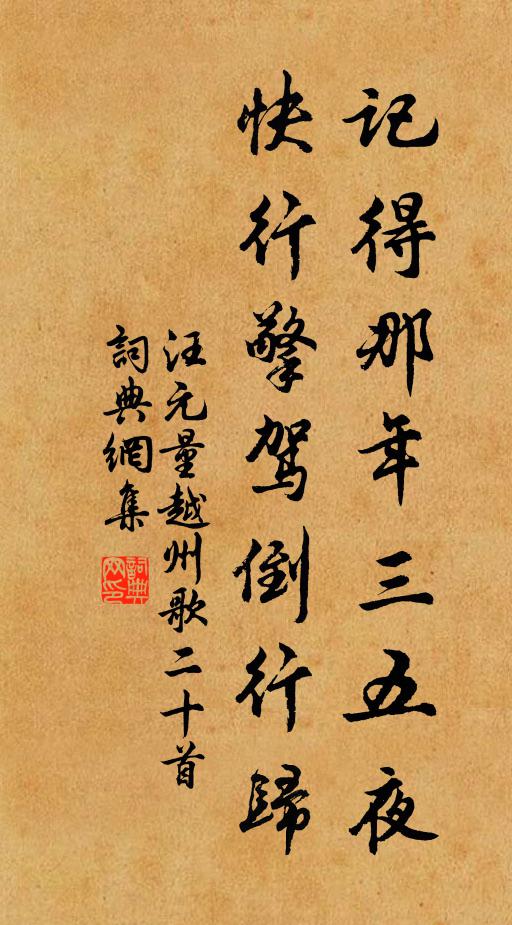 記得那年三五夜
快行擎駕倒行歸
汪元量越州歌二十首
詞典網集
詞典网印